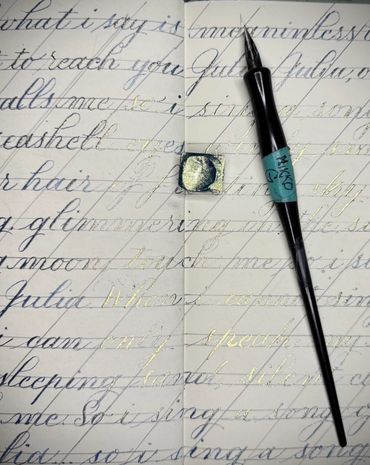 what i say is meaninless
to reach you Julia, Julia, o
alls me so i sing a song
eashell eyes windy
r hair of floating sky
glimmering in the s
g moon, touch me, so i s
Julia. When i cannot sin
i can only speak my
sleeping sand, silent c
me. So i sing a song o
lia... so i sing a song